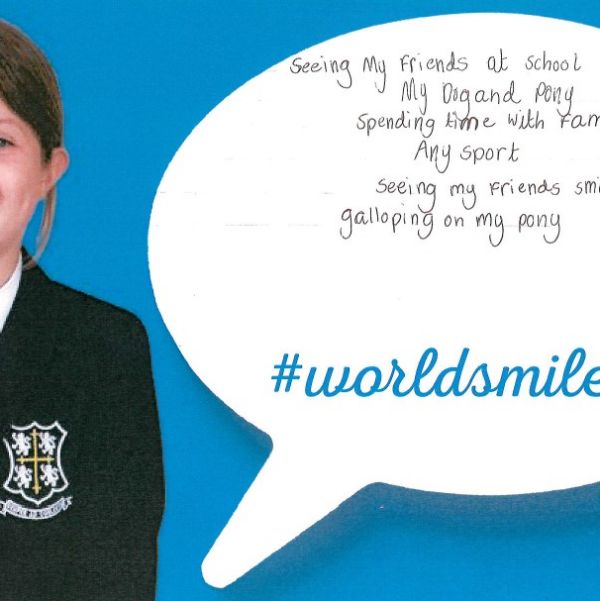 Seeing My Friends at School
My Dog and Pony
Spending time with Fam
Any sport
Seeing my Friends smi
galloping on my pony
#worldsmile